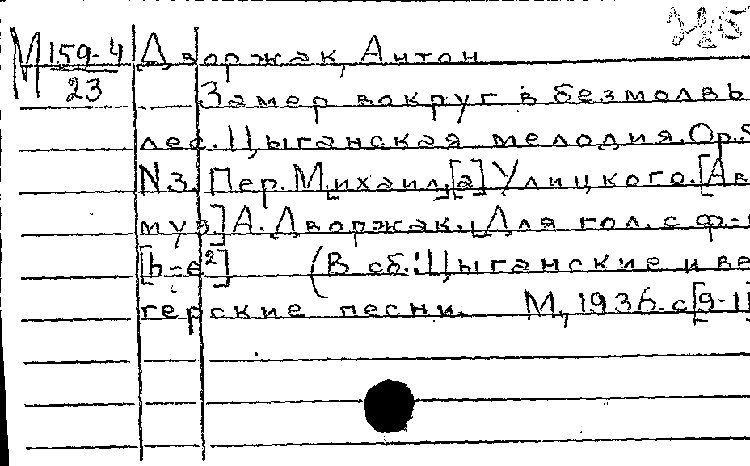 М 159-4 Дворжак, Антон
23 Замер вокруг в безмолвь
лес. Цыганская мелодия. Ор.5
N3. Пер. Михаил[а] Улицкого. [Ав
муз.] А. Дворжак. [Для гол. с ф-
[h-e²] (В сб.: Цыганские и ве
герские песни. М., 1936. с[9-11]